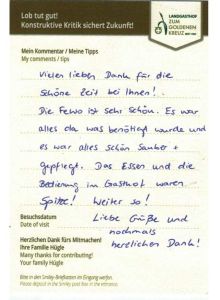 Lob tut gut!
Konstruktive Kritik sichert Zukunft!
LANDGASTHOF
ZUM
GOLDENEN
KREUZ
Mein Kommentar / Meine Tipps
My comments / tips
Vielen lieben Dank für die
schöne Zeit bei Ihnen!
Die FeWo ist sehr schön. Es war
alles da was benötigt wurde und
es war alles schön sauber +
gepflegt. Das Essen und die
Bedienung im Gasthof waren
Spitze! Weiter so!
Besuchsdatum
Date of visit
Liebe Grüße und
nochmals
herzlichen Dank!
Herzlichen Dank fürs Mitmachen!
Ihre Familie Hügle
Many thanks for contributing!
Your family Hügle
Bitte in den Smiley-Briefkasten im Eingang werfen.
Please deposit in the smiley post box in the entrance.